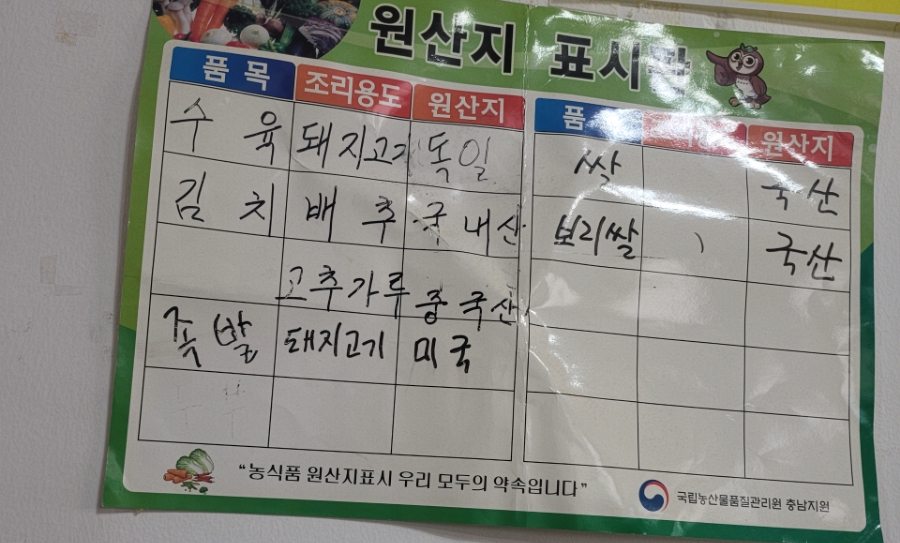 원산지 표시판
품 목 조리용도 원산지
수 육 돼지고기 독일
김 치 배 추 국내산
고추가루 중국산
족발 돼지고기 미국
품 원산지
쌀 국산
보리쌀 국산
“농식품 원산지표시 우리 모두의 약속입니다”
국립농산물품질관리원 충남지원